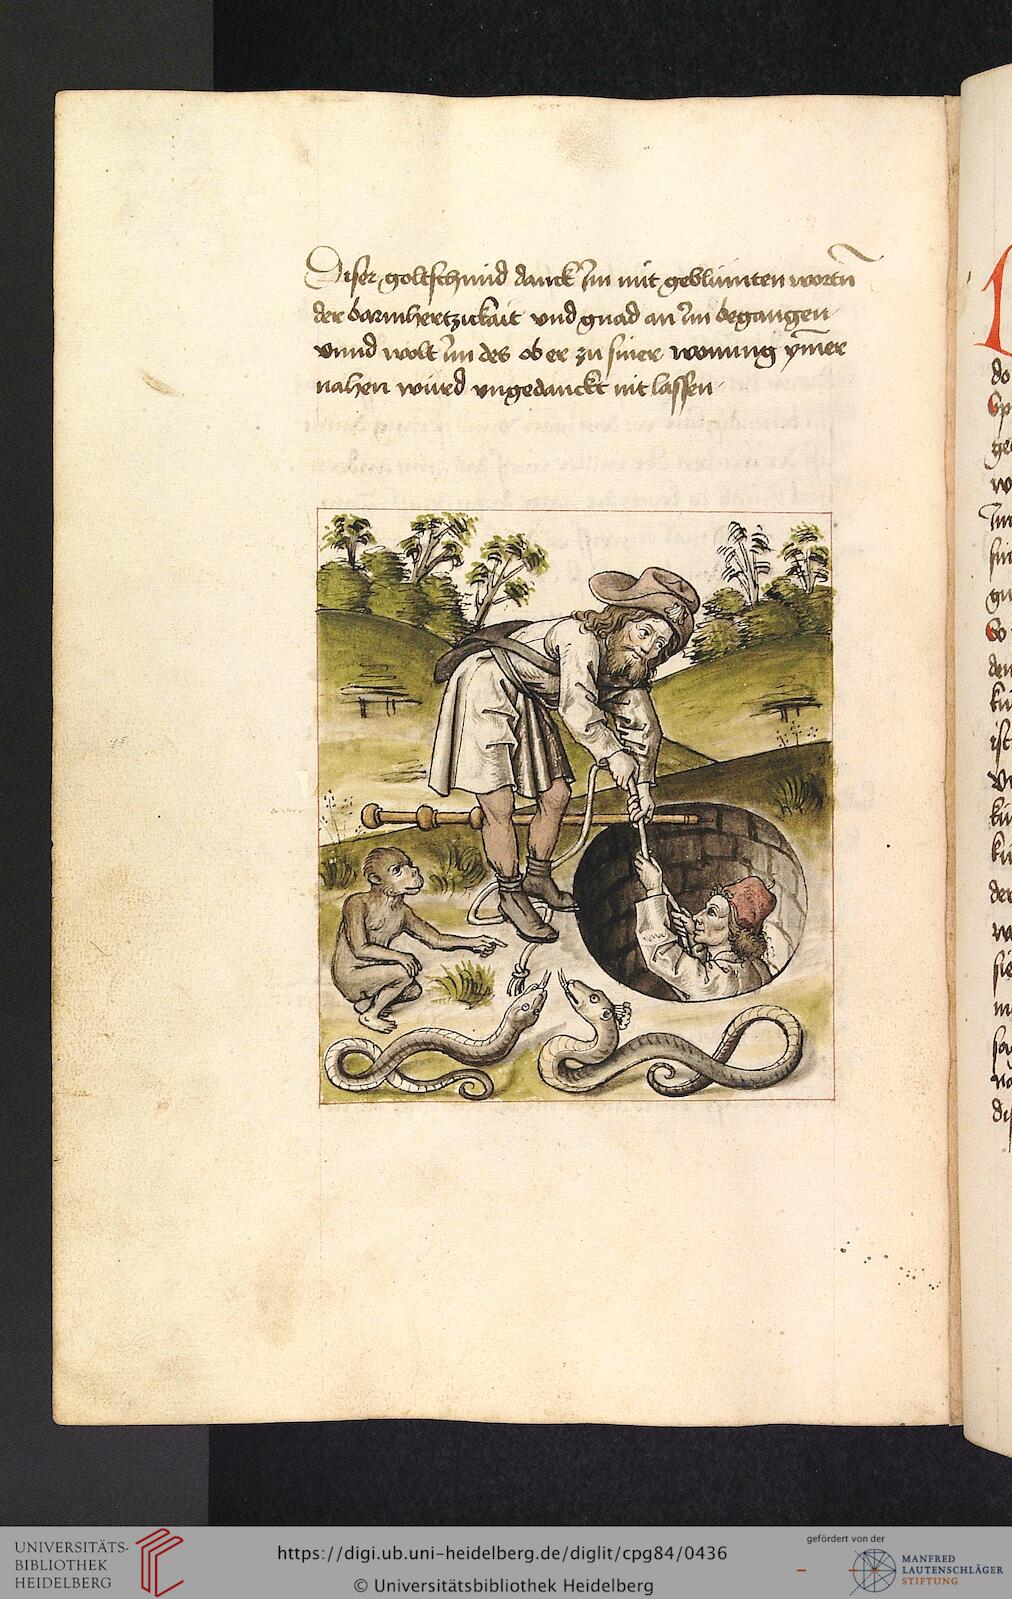 Diser goltschmid danck im mit geblümten wortn̄
der barmhertzickait vnd gnad an im begangen
vnnd wolt im des ob er zu siner wonung ym̄er
nahen würd vngedanckt nit lassen
do
ge
w
im
sin
gn
So
den
kü
ist
vn
kü
kü
der
w
sie
m
di
UNIVERSITÄTS-
BIBLIOTHEK
HEIDELBERG
https://digi.ub.uni-heidelberg.de/diglit/cpg84/0436
© Universitätsbibliothek Heidelberg
gefördert von der
MANFRED
LAUTENSCHLÄGER
STIFTUNG